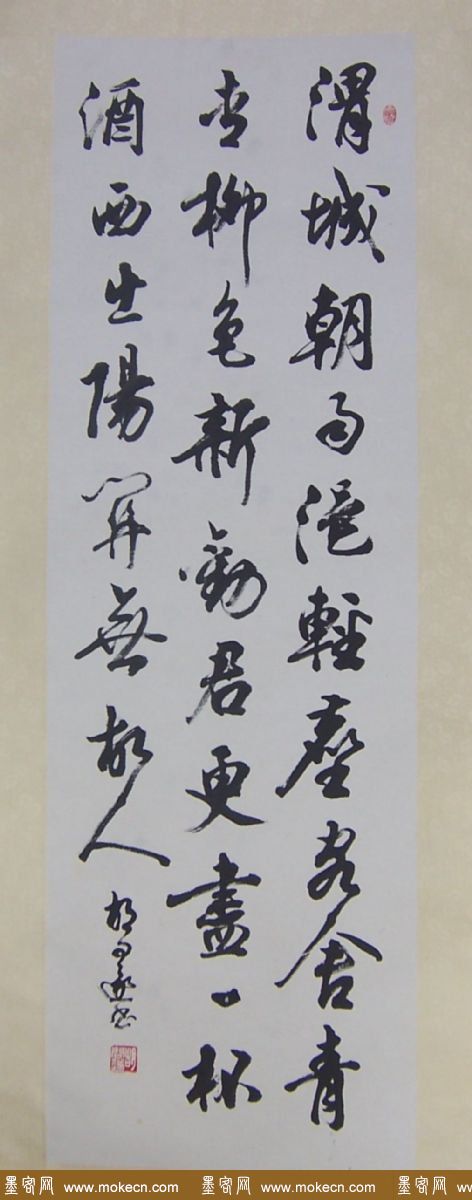 渭城朝雨浥輕塵客舍青
青柳色新勸君更盡一杯
酒西出陽關無故人
胡問遂書
墨客网 www.mokecn.com 墨客网 www.mokecn.com 墨客网